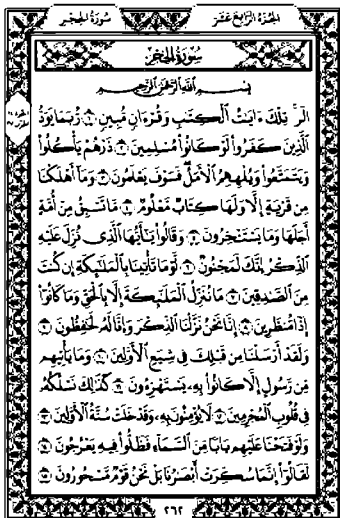 سُورَةُ الحِجْرِ
الجُزْءُ الرَّابِعُ عَشَرَ
سُورَةُ الحِجْرِ
بِسْمِ اللَّهِ الرَّحْمَٰنِ الرَّحِيمِ
الٓر ۚ تِلْكَ ءَايَٰتُ ٱلْكِتَٰبِ وَقُرْءَانٍ مُّبِينٍ ١ رُّبَمَا يَوَدُّ
ٱلَّذِينَ كَفَرُوا۟ لَوْ كَانُوا۟ مُسْلِمِينَ ٢ ذَرْهُمْ يَأْكُلُوا۟
وَيَتَمَتَّعُوا۟ وَيُلْهِهِمُ ٱلْأَمَلُ ۖ فَسَوْفَ يَعْلَمُونَ ٣ وَمَآ أَهْلَكْنَا
مِن قَرْيَةٍ إِلَّا وَلَهَا كِتَابٌ مَّعْلُومٌ ٤ مَّا تَسْبِقُ مِنْ أُمَّةٍ
أَجَلَهَا وَمَا يَسْتَـْٔخِرُونَ ٥ وَقَالُوا۟ يَٰٓأَيُّهَا ٱلَّذِى نُزِّلَ عَلَيْهِ
ٱلذِّكْرُ إِنَّكَ لَمَجْنُونٌ ٦ لَّوْ مَا تَأْتِينَا بِٱلْمَلَٰٓئِكَةِ إِن كُنتَ
مِنَ ٱلصَّٰدِقِينَ ٧ مَا نُنَزِّلُ ٱلْمَلَٰٓئِكَةَ إِلَّا بِٱلْحَقِّ وَمَا كَانُوٓا۟
إِذًا مُّنظَرِينَ ٨ إِنَّا نَحْنُ نَزَّلْنَا ٱلذِّكْرَ وَإِنَّا لَهُۥ لَحَٰفِظُونَ ٩
وَلَقَدْ أَرْسَلْنَا مِن قَبْلِكَ فِى شِيَعِ ٱلْأَوَّلِينَ ١٠ وَمَا يَأْتِيهِم
مِّن رَّسُولٍ إِلَّا كَانُوا۟ بِهِۦ يَسْتَهْزِءُونَ ١١ كَذَٰلِكَ نَسْلُكُهُۥ
فِى قُلُوبِ ٱلْمُجْرِمِينَ ١٢ لَا يُؤْمِنُونَ بِهِۦ ۖ وَقَدْ خَلَتْ سُنَّةُ ٱلْأَوَّلِينَ ١٣
وَلَوْ فَتَحْنَا عَلَيْهِم بَابًا مِّنَ ٱلسَّمَآءِ فَظَلُّوا۟ فِيهِ يَعْرُجُونَ ١٤
لَقَالُوٓا۟ إِنَّمَا سُكِّرَتْ أَبْصَٰرُنَا بَلْ نَحْنُ قَوْمٌ مَّسْحُورُونَ ١٥
٢٦٢